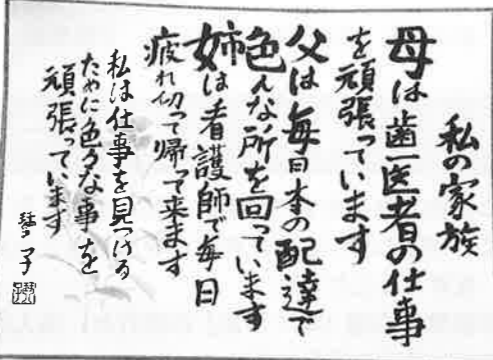 私の家族
母は歯医者の仕事
を頑張っています
父は毎日本の配達で
色んな所を回っています
姉は看護師で毎日
疲れ切って帰って来ます
私は仕事を見つける
ために色々な事を
頑張っています